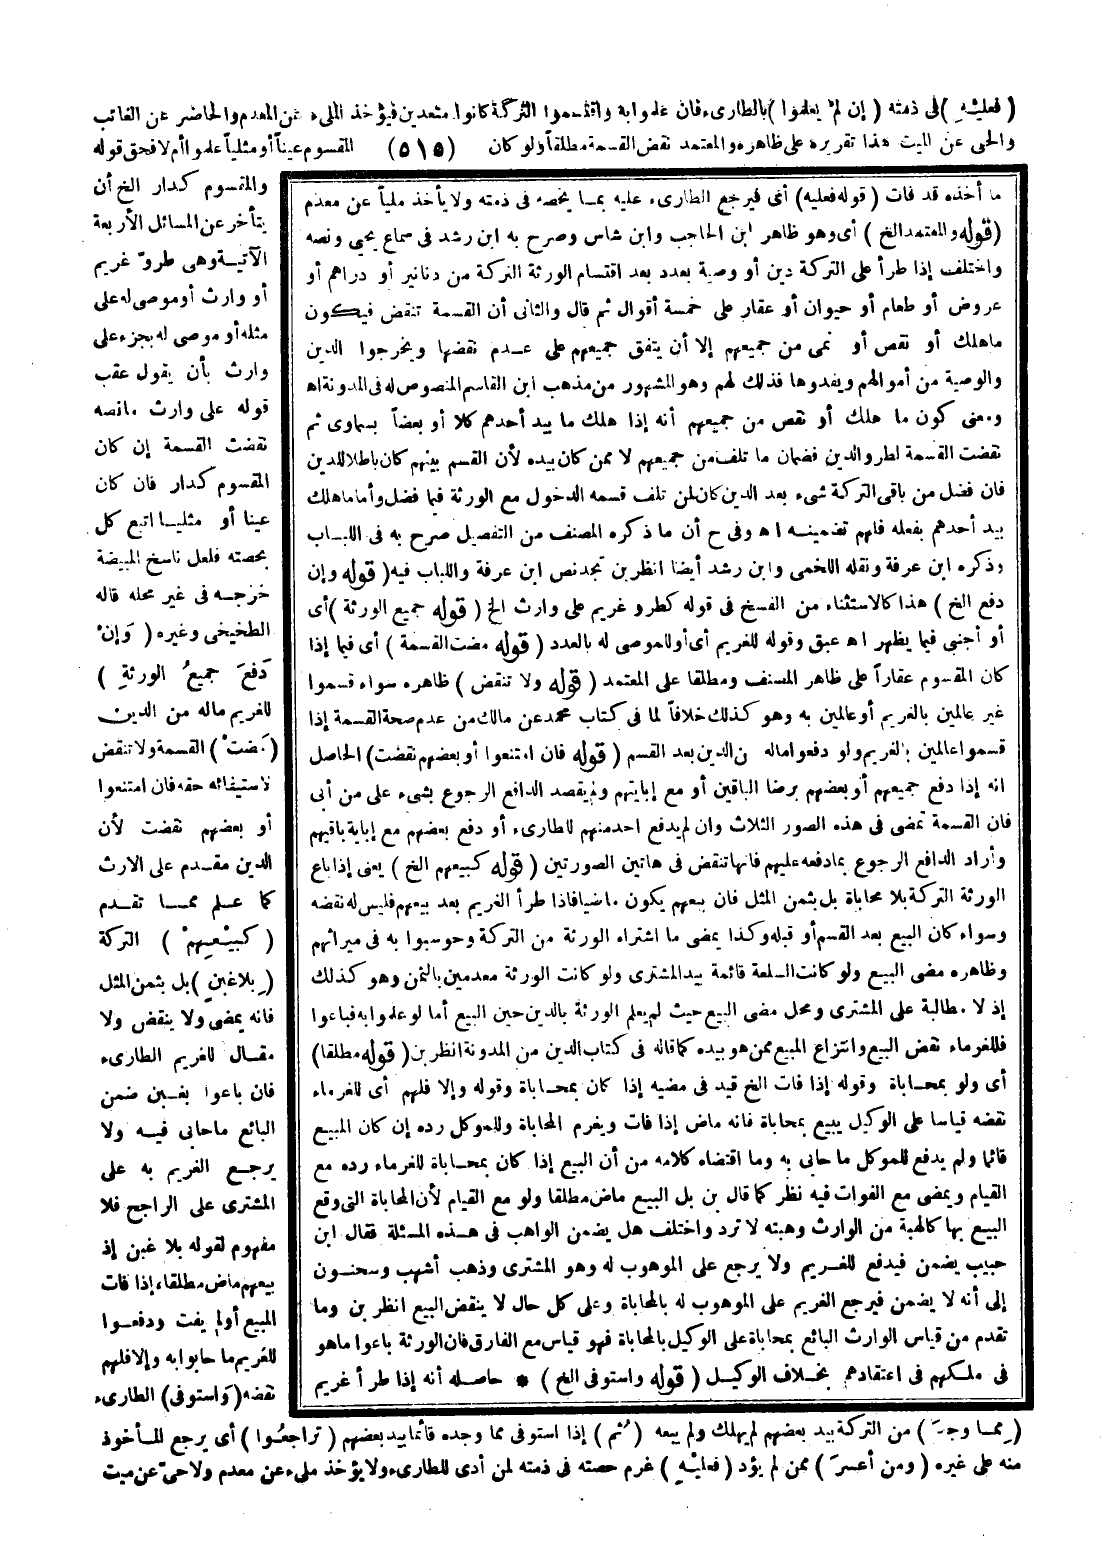 ( فعليْهِ ) فى ذمته ( إن لمْ يعلموا ) بالطارىء فان علموا به واقتسموا التركة كانوا متعدين فيؤخذ الملىء عن المعدم والحاضر عن الغائب
والحى عن الميت هذا تقريره على ظاهره والمعتمد نقض القسمة مطلقاً ولو كان (٥١٥) المقسوم عيناً أو مثلياً علموا أم لا فحق قوله
والمقسوم كدار الخ أن
يتأخر عن المسائل الأربعة
الآتيــة وهى طروّ غريم
أو وارث أو موصى له على
مثله أو موصى له بجزء على
وارث بأن يقول عقب
قوله على وارث مانصه
نقضت القسمة إن كان
المقسوم كدار فان كان
عينا أو مثليــا اتبع كل
بحصته فلعل ناسخ المبيضة
خرجــه فى غير محله قاله
الطخيخى وغيره ( وَإنْ
دَفعَ جميعُ الورثةِ )
للغريم ماله من الدين
( مَضتْ ) القسمة ولا تنقض
لاستيفائه حقه فان امتنعوا
أو بعضهم نقضت لأن
الدين مقــدم على الارث
كما علــم ممــا تقــدم
( كبيْعِهِمْ ) التركة
( بِلا غبنٍ ) بل بثمن المثل
فانه يمضى ولا ينقض ولا
مقــال للغريم الطارىء
فان باعوا بغــبن ضمن
البائع ماحابى فيــه ولا
يرجــع الغريم به على
المشترى على الراجح فلا
مفهوم لقوله بلا غبن إذ
بيعهم ماض مطلقاء إذا فات
المبيع أولم يفت ودفعــوا
للغريم ما حابوا به وإلا فلهم
نقضه ( وَاستوفى ) الطارىء
ما أخذه قد فات ( قوله فعليه ) أى فيرجع الطارىء عليه بمــا يخصه فى ذمته ولا يأخذ ملياً عن معدم
( قوله والمعتمد الخ ) أى وهو ظاهر ابن الحاجب وابن شاس وصرح به ابن رشد فى سماع يحي ونصه
واختلف إذا طرأ على التركة دين أو وصية بعدد بعد اقتسام الورثة التركة من دنانير أو دراهم أو
عروض أو طعام أو حيوان أو عقار على خمسة أقوال ثم قال والثانى أن القسمة تنقض فيكون
ماهلك أو نقص أو نمى من جميعهم إلا أن يتفق جميعهم على عــدم نقضها ويخرجوا الدين
والوصية من أموالهم ويفدوها فذلك لهم وهو المشهور من مذهب ابن القاسم المنصوص له فى المدونة اه
ومعنى كون ما هلك أو نقص من جميعهم أنه إذا هلك ما بيد أحدهم كلا أو بعضاً بسماوى ثم
نقضت القسمة لطرو الدين فضمان ما تلف من جميعهم لا ممن كان بيده لأن القسم بينهم كان باطلا للدين
فان فضل من باقى التركة شىء بعد الدين كان لمن تلف قسمه الدخول مع الورثة فيما فضل وأما ماهلك
بيد أحدهم بفعله فلهم تضمينــه اه وفى ح أن ما ذكره المصنف من التفصيل صرح به فى اللبــاب
وذكره ابن عرفة ونقله اللخمى وابن رشد أيضا انظر بن تجد نص ابن عرفة واللباب فيه ( قوله وإن
دفع الخ ) هذا كالاستثناء من الفسخ فى قوله كطرو غريم على وارث الخ ( قوله جميع الورثة ) أى
أو أجنبى فيما يظهر اه عبق وقوله للغريم أى أو للموصى له بالعدد ( قوله مضت القسمة ) أى فيما إذا
كان المقسوم عقاراً على ظاهر المصنف ومطلقا على المعتمد ( قوله ولا تنقض ) ظاهره سواء قسموا
غير عالمين بالغريم أو عالمين به وهو كذلك خلافاً لما فى كتاب محمد عن مالك من عدم صحة القسمة إذا
قسموا عالمين بالغريم ولو دفعوا ماله من الدين بعد القسم ( قوله فان امتنعوا أو بعضهم نقضت ) الحاصل
انه إذا دفع جميعهم أو بعضهم برضا الباقين أو مع إبايتهم ولم يقصد الدافع الرجوع بشىء على من أبى
فان القسمة تمضى فى هذه الصور الثلاث وان لم يدفع احد منهم للطارىء أو دفع بعضهم مع إباية باقيهم
وأراد الدافع الرجوع بما دفعه عليهم فانها تنقض فى هاتين الصورتين ( قوله كبيعهم الخ ) يعنى إذا باع
الورثة التركة بلا محاباة بل بثمن المثل فان بيعهم يكون ماضيا فاذا طرأ الغريم بعد بيعهم فليس له نقضه
وسواء كان البيع بعد القسم أو قبله وكذا يمضى ما اشتراه الورثة من التركة وحوسبوا به فى ميراثهم
وظاهره مضى البيع ولو كانت السلعة قائمة بيد المشترى ولو كانت الورثة معدمين بالثمن وهو كذلك
إذ لا مطالبة على المشترى ومحل مضى البيع حيث لم يعلم الورثة بالدين حين البيع أما لو علموا به فباعوا
فللغرماء نقض البيع وانتزاع المبيع ممن هو بيده كما قاله فى كتاب الدين من المدونة انظر بن ( قوله مطلقا )
أى ولو بمحــاباة وقوله إذا فات الخ قيد فى مضيه إذا كان بمحــاباة وقوله وإلا فلهم أى للغرماء
نقضه قياسا على الوكيل يبيع بمحاباة فانه ماض إذا فات ويغرم المحاباة وللموكل رده إن كان المبيع
قائما ولم يدفع للموكل ما حابى به وما اقتضاه كلامه من أن البيع إذا كان بمحــاباة للغرماء رده مع
القيام ويمضى مع الفوات فيه نظر كما قال بن بل البيع ماض مطلقا ولو مع القيام لأن المحاباة التى وقع
البيع بها كالهبة من الوارث وهبته لا ترد واختلف هل يضمن الواهب فى هــذه المسئلة فقال ابن
حبيب يضمن فيدفع للغــريم ولا يرجع على الموهوب له وهو المشترى وذهب أشهب وسحنــون
إلى أنه لا يضمن فيرجع الغريم على الموهوب له بالمحاباة وعلى كل حال لا ينقض البيع انظر بن وما
تقدم من قياس الوارث البائع بمحاباة على الوكيل بالمحاباة فهو قياس مع الفارق فان الورثة باعوا ماهو
فى ملكهم فى اعتقادهم بخــلاف الوكيــل ( قوله واستوفى الخ ) * حاصله أنه إذا طرأ غريم
( مِمــا وجدَ ) من التركة بيد بعضهم لم يهلك ولم يبعه ( ثُم ) إذا استوفى مما وجده قائما بيد بعضهم ( تراجعُوا ) أى يرجع المــأخوذ
منه على غيره ( ومن أعسرَ ) ممن لم يؤد ( فعليْهِ ) غرم حصته فى ذمته لمن أدى للطارىء ولا يؤخذ ملىء عن معدم ولا حىّ عن ميت